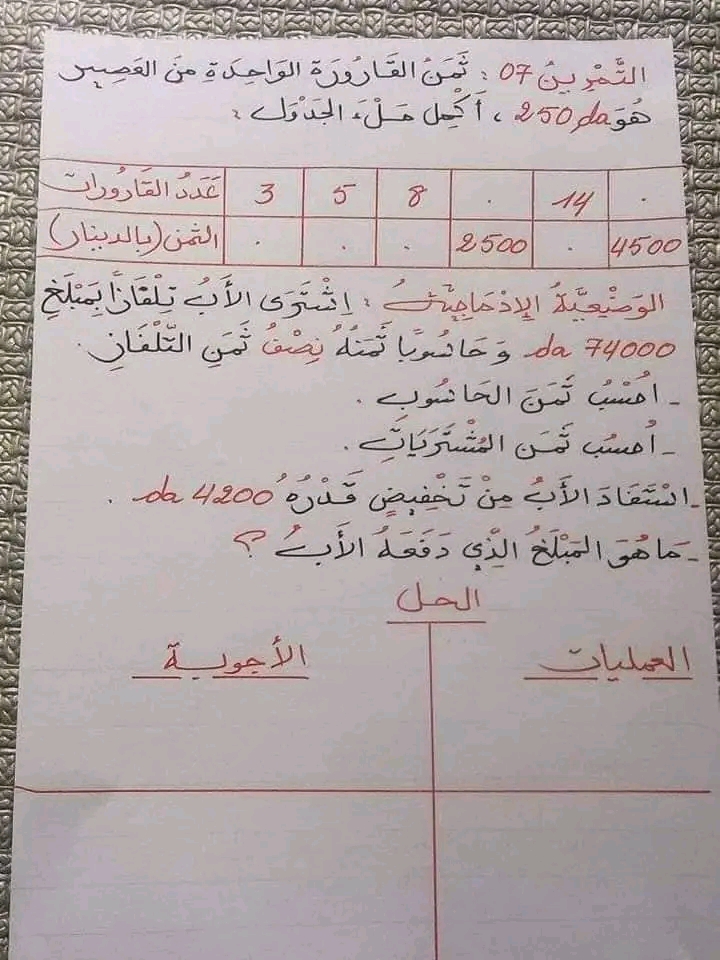 التَّمْرِينُ 07 : ثَمَنُ القَارُورَةِ الوَاحِدَةِ مِنَ العَصِيرِ
هُوَ 250 da ، أَكْمِل مَلْءَ الجَدْوَلِ :
عَدَدُ القَارُورَات 3 5 8 . 14 .
الثمن (بالدينار) . . . 2500 . 4500
الوَضْعِيَّةُ الإِدْمَاجِيَّةُ : اِشْتَرَى الأَبُ تِلْفَازًا بِمَبْلَغِ
74000 da وَحَاسُوبًا ثَمَنُهُ نِصْفُ ثَمَنِ التِّلْفَازِ .
- اُحْسُبْ ثَمَنَ الحَاسُوبِ .
- اُحسُب ثَمَنَ المُشْتَرَيَاتِ .
- اسْتَفَادَ الأَبُ مِنْ تَخْفِيضٍ قَدْرُهُ 4200 da .
- مَا هُوَ المَبْلَغُ الَّذِي دَفَعَهُ الأَبُ ؟
الحل
العمليات الأجوبة